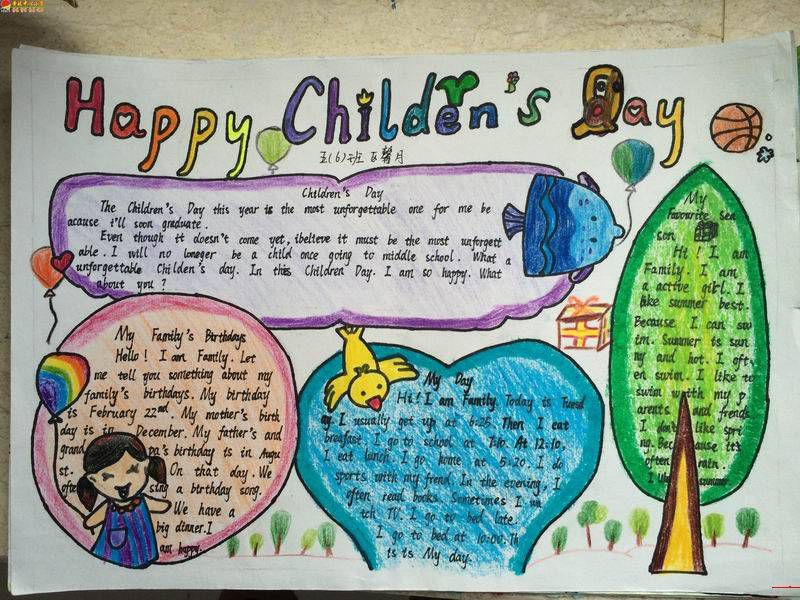 Happy Children's Day
五(6)班 区馨月
Children's Day
The Children's Day this year is the most unforgettable one for me be
acause i'll soon graduate.
Even though it doesn't come yet, ibelieve it must be the most unforgett
able. I will no loneger be a child once going to middle school. What a
unforgettable Childen's day. In this Children Day. I am so happy. What
about you?
My Family's Birthdays
Hello! I am Family. Let
me tell you something about my
family's birthdays. My birthday
is February 22nd. My mother's birth
day is in December. My father's and
grand pa's birthday is in Augu
st. On that day. We
often sing a birthday song.
We have a
big dinner. I
am happy.
My Day
Hi! I am Family. Today is Tuesd
ay. I usually get up at 6:25. Then I eat
breakfast. I go to school at 7:10. At 12:10,
I eat lunch. I go home at 5:20. I do
sports with my frend. In the evening, I
often read books. Sometimes I wa
tch TV. I go to bed late.
I go to bed at 10:00. Th
is is My day.
My
Favourite Sea
son
Hi! I am
Family. I am
a active girl. I
like summer best.
Because I can sw
im. Summer is sun
ny and hot. I oft
en swim. I like to
swim with my p
arents and friends
I don't like spri
ng. Because it's
often rain.
I like summer.